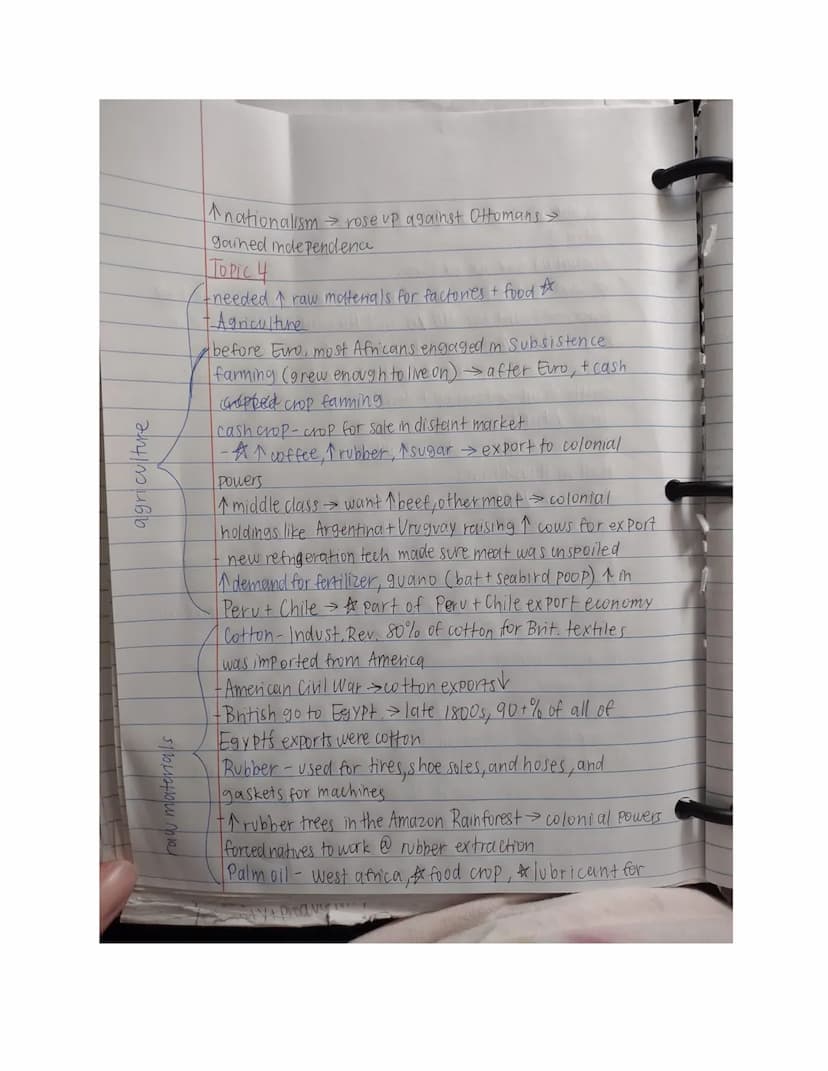 ↑ nationalism → rose up against Ottomans →
gained independence
Topic 4
- needed ↑ raw materials for factories + food ☆
- Agriculture
before Euro, most Africans engaged in Subsistence
farming (grew enough to live on) → after Euro, + cash
crop farming
cash crop - crop for sale in distant market
- ☆ ↑ coffee, ↑ rubber, ↑ sugar → export to colonial
powers
↑ middle class → want ↑ beef, other meat → colonial
holdings like Argentina + Uruguay raising ↑ cows for export
- new refrigeration tech made sure meat was unspoiled
↑ demand for fertilizer, guano (bat + seabird poop) ↑ in
Peru + Chile → ☆ part of Peru + Chile export economy
agriculture
Cotton - Indust. Rev. 80% of cotton for Brit. textiles
was imported from America
- American Civil War → cotton exports ↓
- British go to Egypt → late 1800s, 90+% of all of
Egypts exports were cotton
Rubber - used for tires, shoe soles, and hoses, and
gaskets for machines
- ↑ rubber trees in the Amazon Rainforest → colonial powers
forced natives to work @ rubber extraction
Palm oil - west africa, ☆ food crop, ☆ lubricant for
raw materials